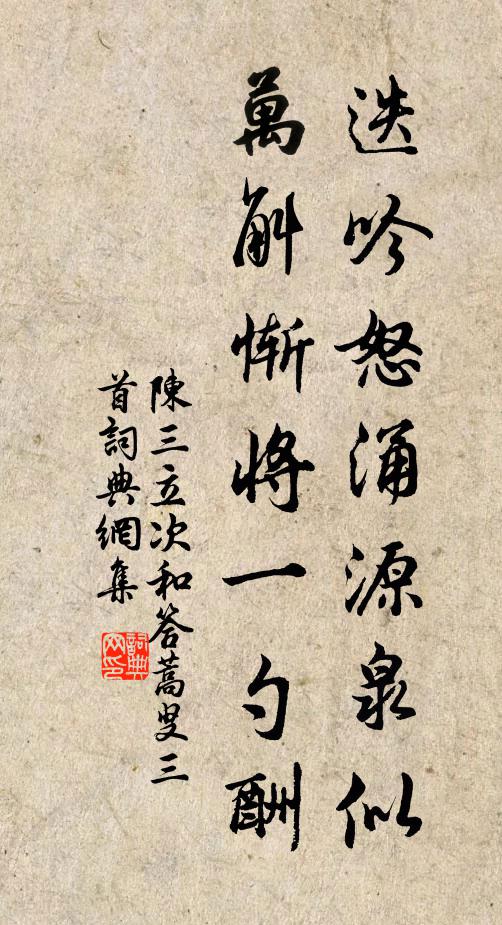 迭吟怒涌源泉似
萬斛慚將一勺酬
陳三立次和答蒿叟三
首詞典網集
詞典
网印